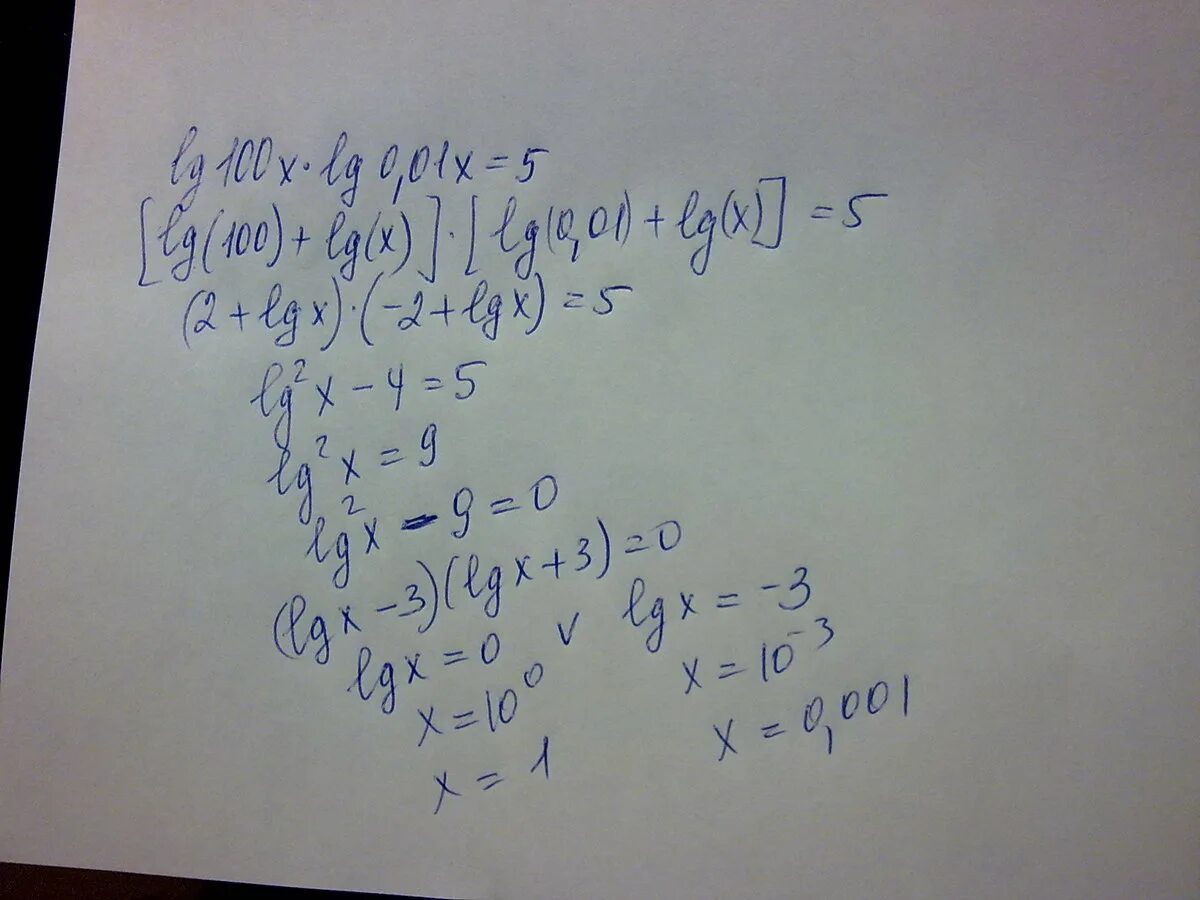 lg 100x · lg 0,01x = 5
[lg(100) + lg(x)] · [lg(0,01) + lg(x)] = 5
(2 + lg x) · (-2 + lg x) = 5
lg² x - 4 = 5
lg² x = 9
lg² x - 9 = 0
(lg x - 3)(lg x + 3) = 0
lg x = 0 v lg x = -3
x = 10⁰ x = 10⁻³
x = 1 x = 0,001